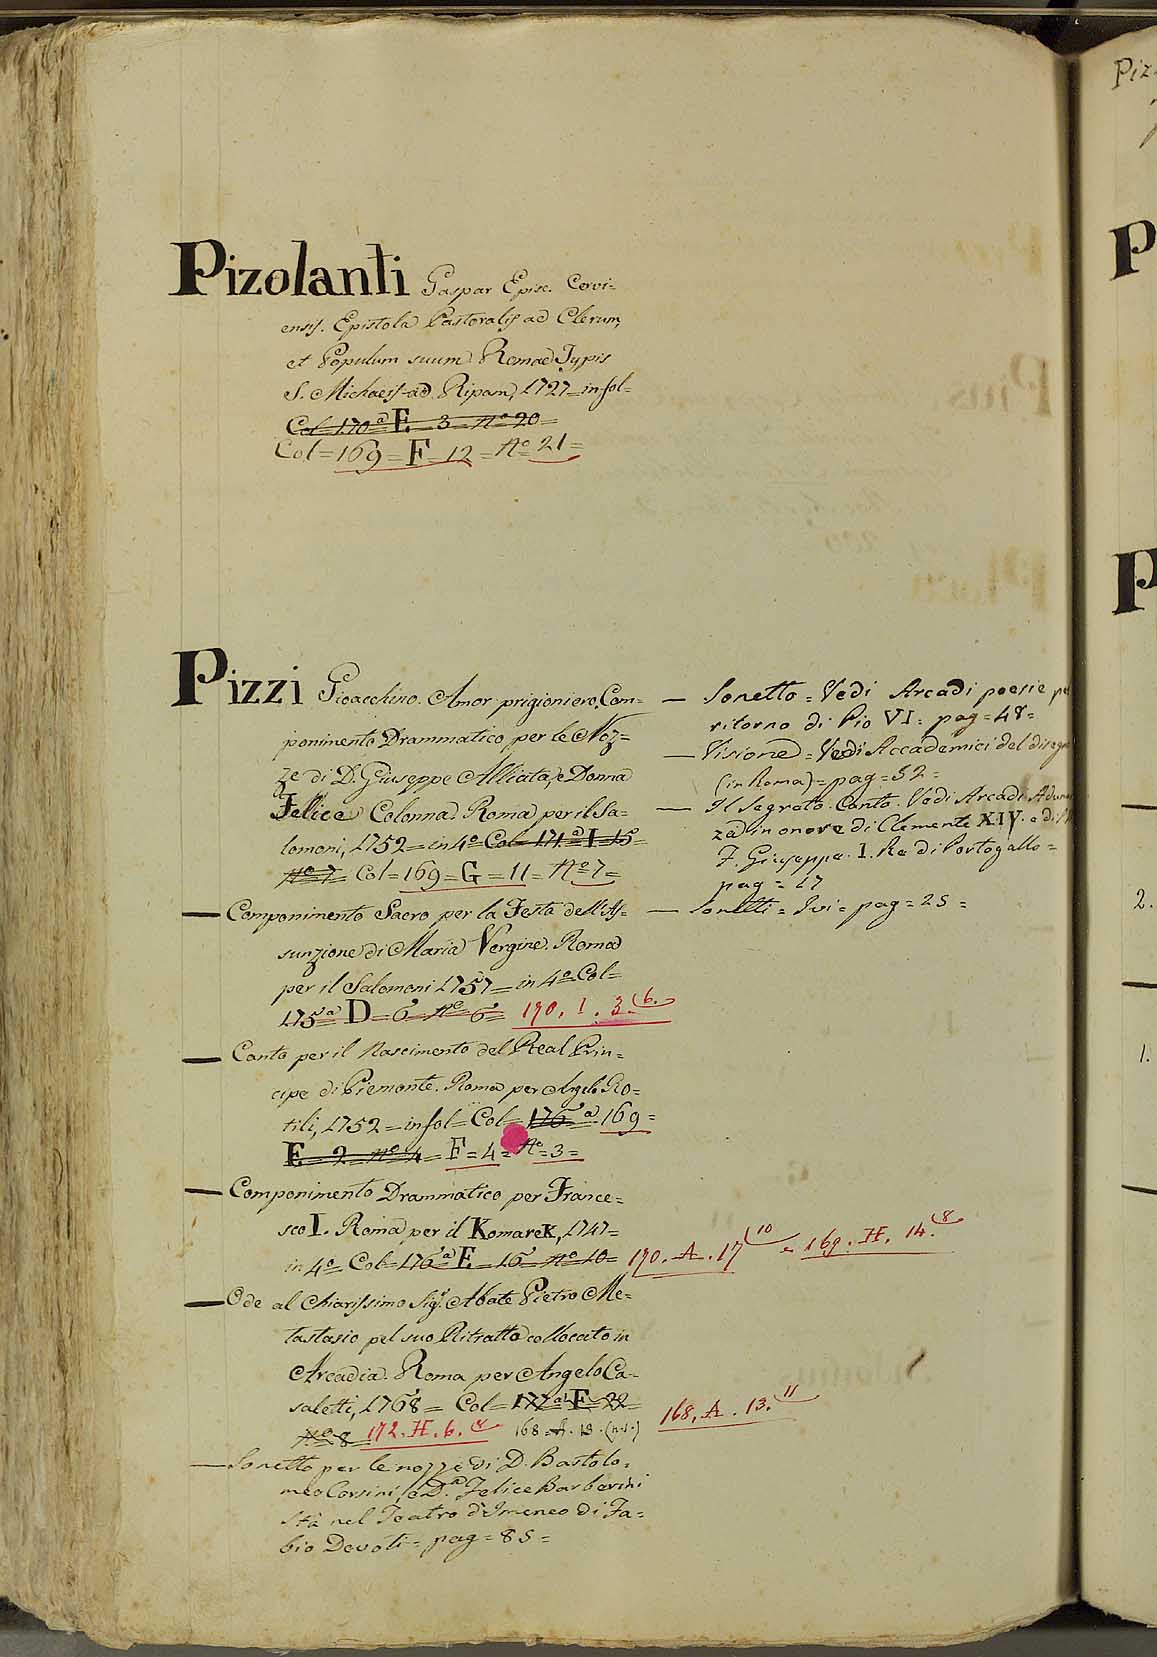 Pizolanti Gaspar Episc. Cervi=
ensis. Epistola Pastoralis ad Clerum,
et Populum suum. Romae Typis
S. Michaelis ad Ripam, 1727 = in fol=
Col = 170ª E = 3 = Nº 20 =
Col = 169 = F = 12 = Nº 21 =
Pizzi Gioacchino. Amor prigioniero, Com=
ponimento Drammatico per le Noz=
ze di D. Giuseppe Alliata, e Donna
Felice Colonna. Roma per il Sa=
lomoni, 1752 = in 4º Col = 174ª I 15 =
Nº 7 = Col = 169 = G = 11 = Nº 7 =
— Componimento Sacro per la Festa dell'As=
sunzione di Maria Vergine. Roma
per il Salomoni 1757 = in 4º Col =
175ª D = 6 = Nº 6 = 170. I. 3. 6.
— Canto per il Nascimento del Real Prin=
cipe di Piemonte. Roma per Angelo Ro=
tili, 1752 = in fol = Col = 176ª 169 =
E = 2 = Nº 4 = F = 4 = Nº = 3 =
— Componimento Drammatico per France=
sco I. Roma per il Komarek, 1747 =
in 4º Col = 176ª E = 16 = Nº 10 = 170. A. 17 10 e 169. H. 14. 8
— Ode al Chiarissimo Sigr. Abate Pietro Me=
tastasio pel suo Ritratto collocato in
Arcadia. Roma per Angelo Ca=
saletti, 1768 = Col = 177ª F = 22 =
Nº 8 = 172. H. 6. 8 168. A. 13. (n.11.) 168. A. 13. 11
— Sonetto per le nozze di D. Bartolo=
meo Corsini, e D.ª Felice Barberini
Stà nel Teatro d'Imeneo di Fa=
bio Devoti = pag = 85 =
— Sonetto = Vedi Arcadi poesie
ritorno di Pio VI = pag = 48 =
— Visione = Vedi Accademici del disegno
(in Roma) = pag = 52 =
— Il Segrato. Canto. Vedi Arcadi Adunan
za in onore di Clemente XIV. e di
F. Giuseppe I. Re di Portogallo =
pag = 17
— Sonetti = Ivi = pag = 25 =
Piz
P
P
2.
1.